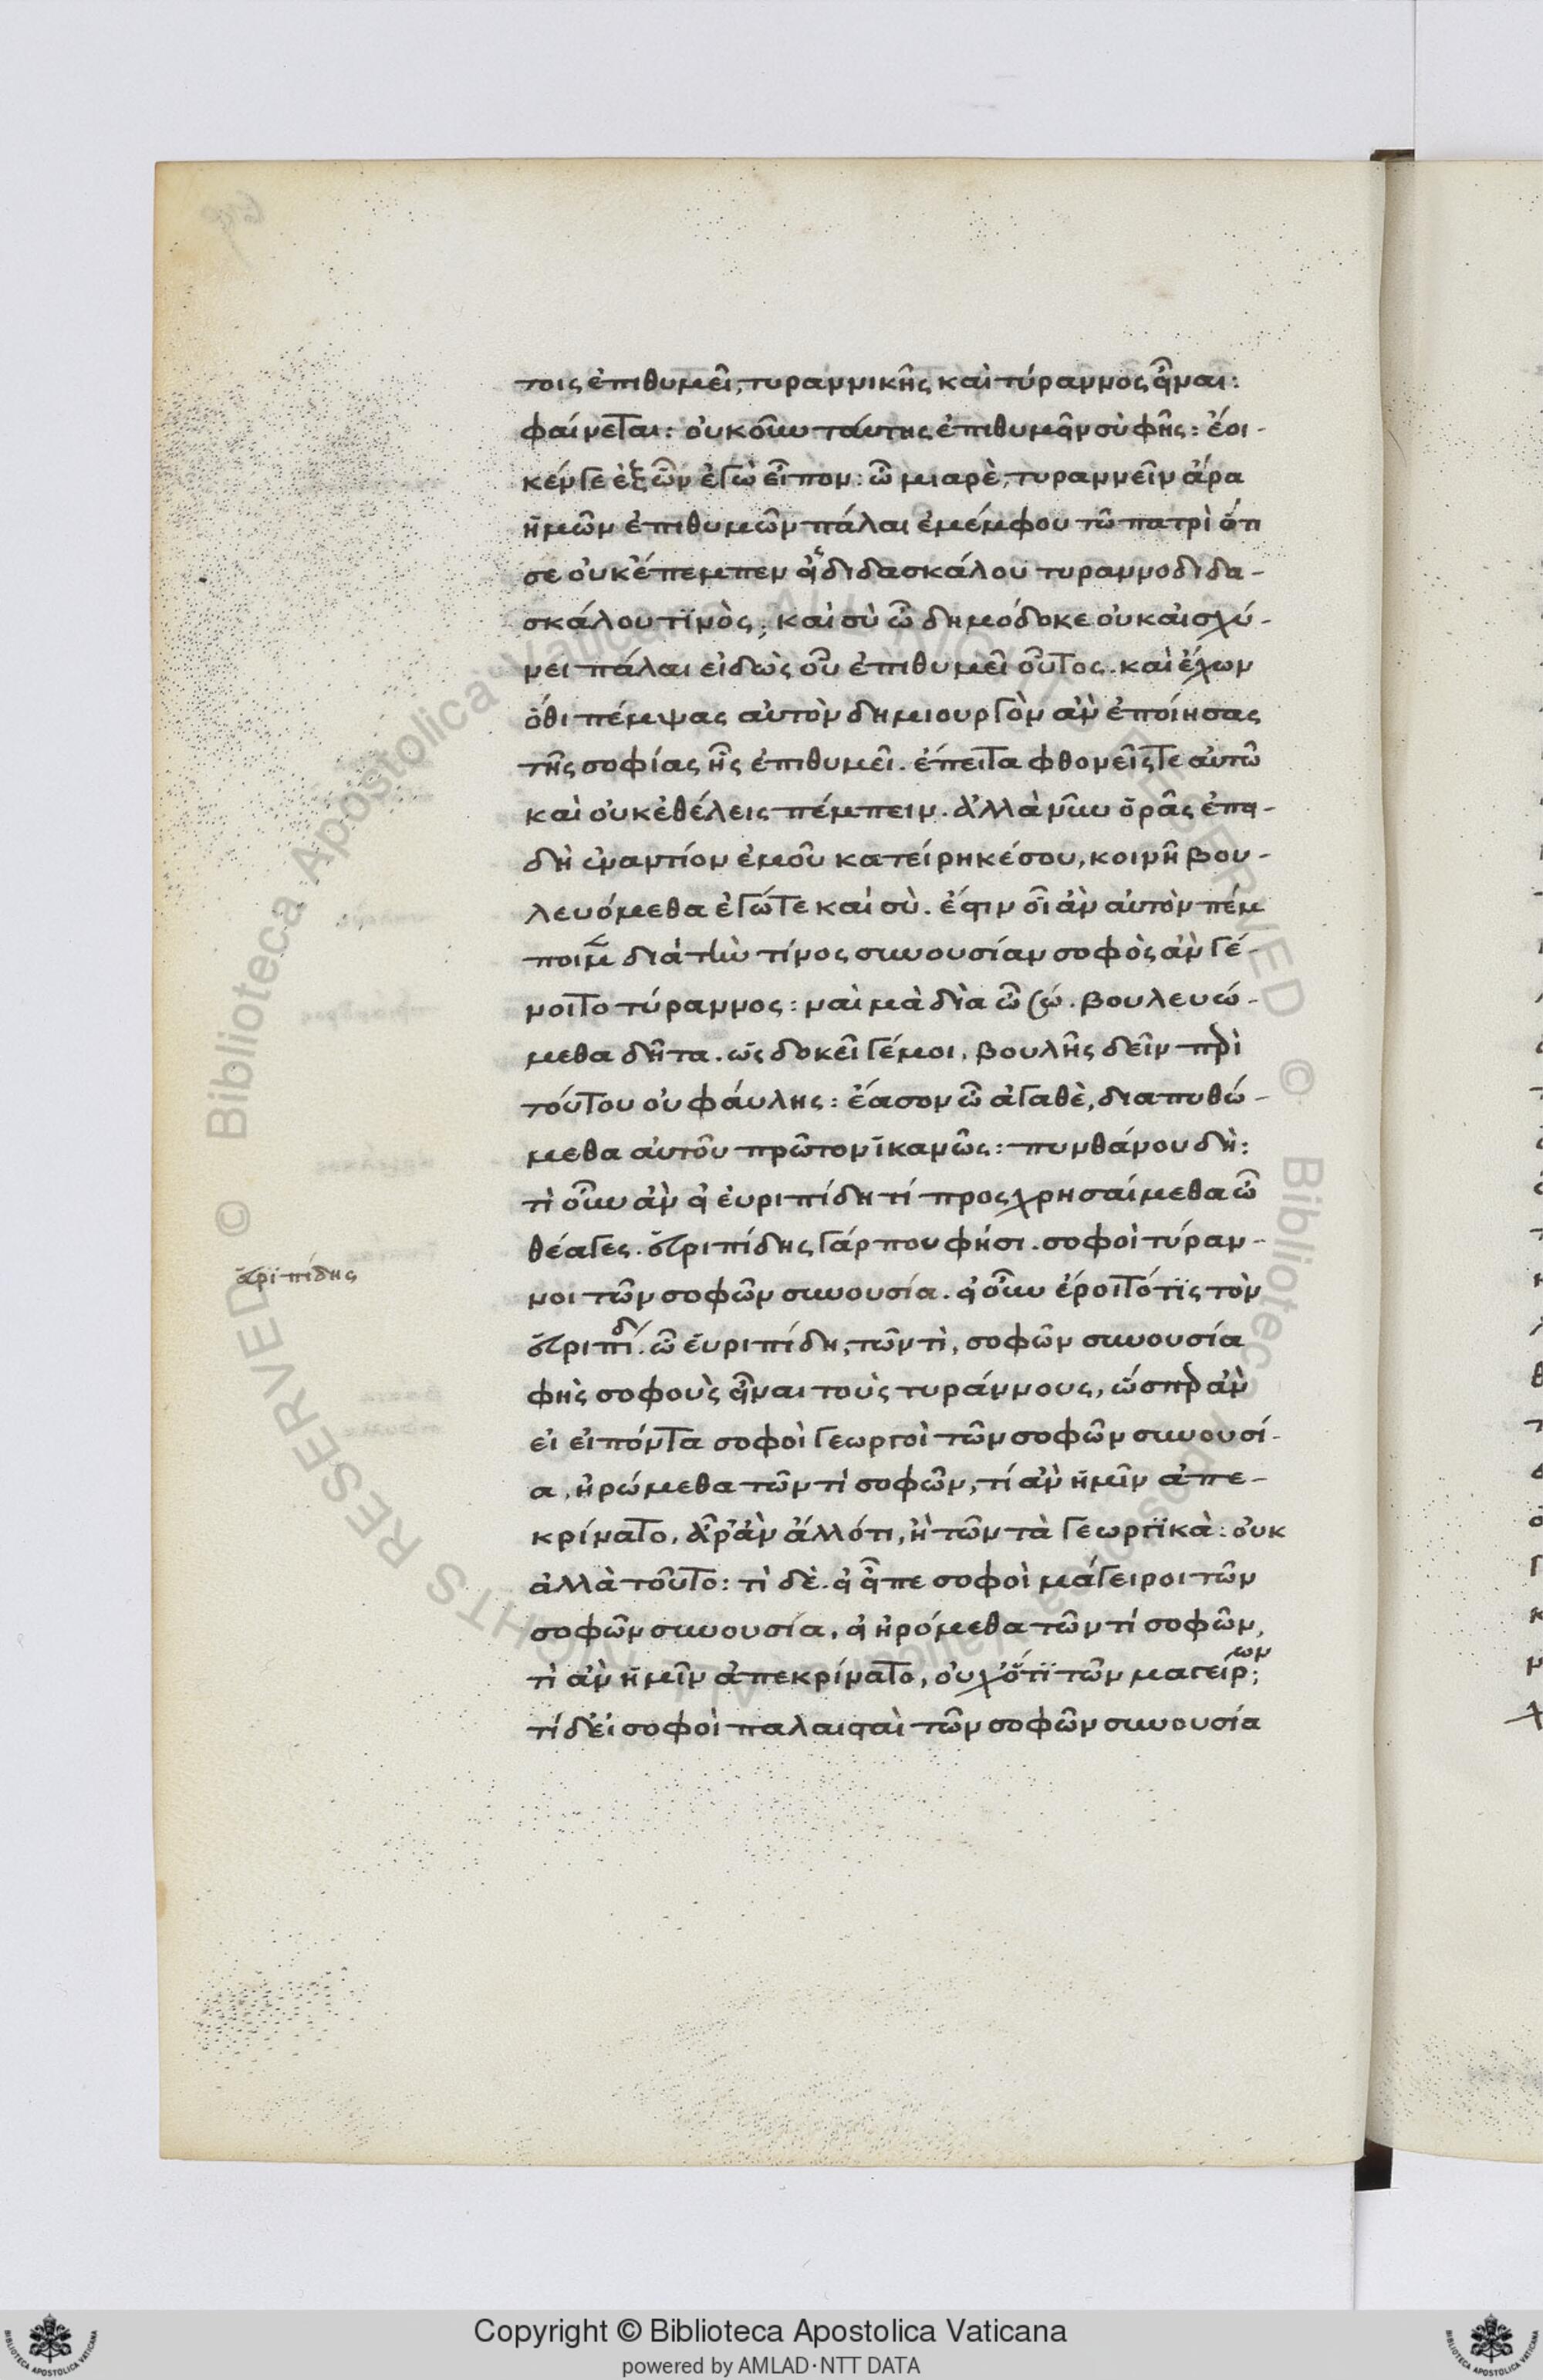 τοις ἐπιθυμεῖ, τυραννικῆς καὶ τύραννος εἶναι:
φαίνεται: οὐκοῦν ταύτης ἐπιθυμεῖν σὺ φῆς: ἔοι-
κέν γε ἐξ ὧν ἐγὼ εἶπον: ὦ μιαρὲ, τυραννεῖν ἄρα
ἡμῶν ἐπιθυμῶν πάλαι ἐμέμφου τῶ πατρὶ ὅτι
σε οὐκ ἔπεμπεν εἰς διδασκάλου τυραννοδιδα-
σκάλου τινὸς; καὶ σὺ ὦ δημόδοκε οὐκ αἰσχύ-
νει πάλαι εἰδὼς οὗ ἐπιθυμεῖ οὗτος. καὶ ἔχων
ὅθι πέμψας αὐτὸν δημιουργὸν ἂν ἐποίησας
τῆς σοφίας ἧς ἐπιθυμεῖ. ἔπειτα φθονεῖς τε αὐτῶ
καὶ οὐκ ἐθέλεις πέμπειν. ἀλλὰ νῦν ὁρᾶς ἐπει-
δὴ ἐναντίον ἐμοῦ κατείρηκέ σου, κοινῆ βου-
λευόμεθα ἐγώ τε καὶ σὺ. ἔστιν οἷ ἂν αὐτὸν πέμ
ποιμεν διὰ τὴν τίνος συνουσίαν σοφὸς ἂν γέ-
νοιτο τύραννος: ναὶ μὰ δία ὦ σώ. βουλευώ-
μεθα δῆτα. ὥς δοκεῖ γέ μοι, βουλῆς δεῖν περὶ
τούτου οὐ φάυλης: ἔασον ὦ ἀγαθὲ, διαπυθώ-
μεθα αὐτοῦ πρῶτον ἱκανῶς: πυνθάνου δὴ:
τὶ οὖν ἂν εἰ ἐυριπίδη τί προσχρησαίμεθα ὦ
θέαγες. εὐριπίδης γάρ που φήσι. σοφοὶ τύραν-
νοι τῶν σοφῶν συνουσία. εἰ οὖν ἔροιτό τις τὸν
εὐριπίδ. ὦ ἐυριπίδη, τῶν τὶ, σοφῶν συνουσία
φὴς σοφοὺς εἶναι τοὺς τυράννους, ὥσπερ ἂν
εἰ εἰπόντα σοφοὶ γεωργοὶ τῶν σοφῶν συνουσί-
α, ἠρώμεθα τῶν τὶ σοφῶν, τί ἂν ἡμῖν ἀπε-
κρίνατο, ἆρ' ἂν ἄλλό τι, ἢ τῶν τὰ γεωργικὰ: οὐκ
ἀλλὰ τοῦτο: τὶ δὲ. εἰ εἶπε σοφοὶ μάγειροι τῶν
σοφῶν συνουσία, εἰ ἠρόμεθα τῶν τί σοφῶν,
τὶ ἂν ἡμῖν ἀπεκρίνατο, οὐχ ὅτι τῶν μαγείρων;
τί δ' εἰ σοφοὶ παλαισταὶ τῶν σοφῶν συνουσία
εὐριπίδης
© Biblioteca Apostolica Vaticana ALL RIGHTS RESERVED
Copyright © Biblioteca Apostolica Vaticana
powered by AMLAD·NTT DATA